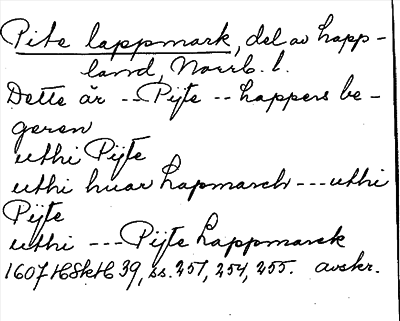 Pite lappmark, del av Lapp-
land, Norrb. l.
Dette är --- Pijte --- Lappers be-
geren
uthi Pijte
uthi huar Lapmarch --- uthi
Pijte
uthi --- Pijte Lappmarck
1607 HSkH 39, ss. 251, 254, 255. avskr.